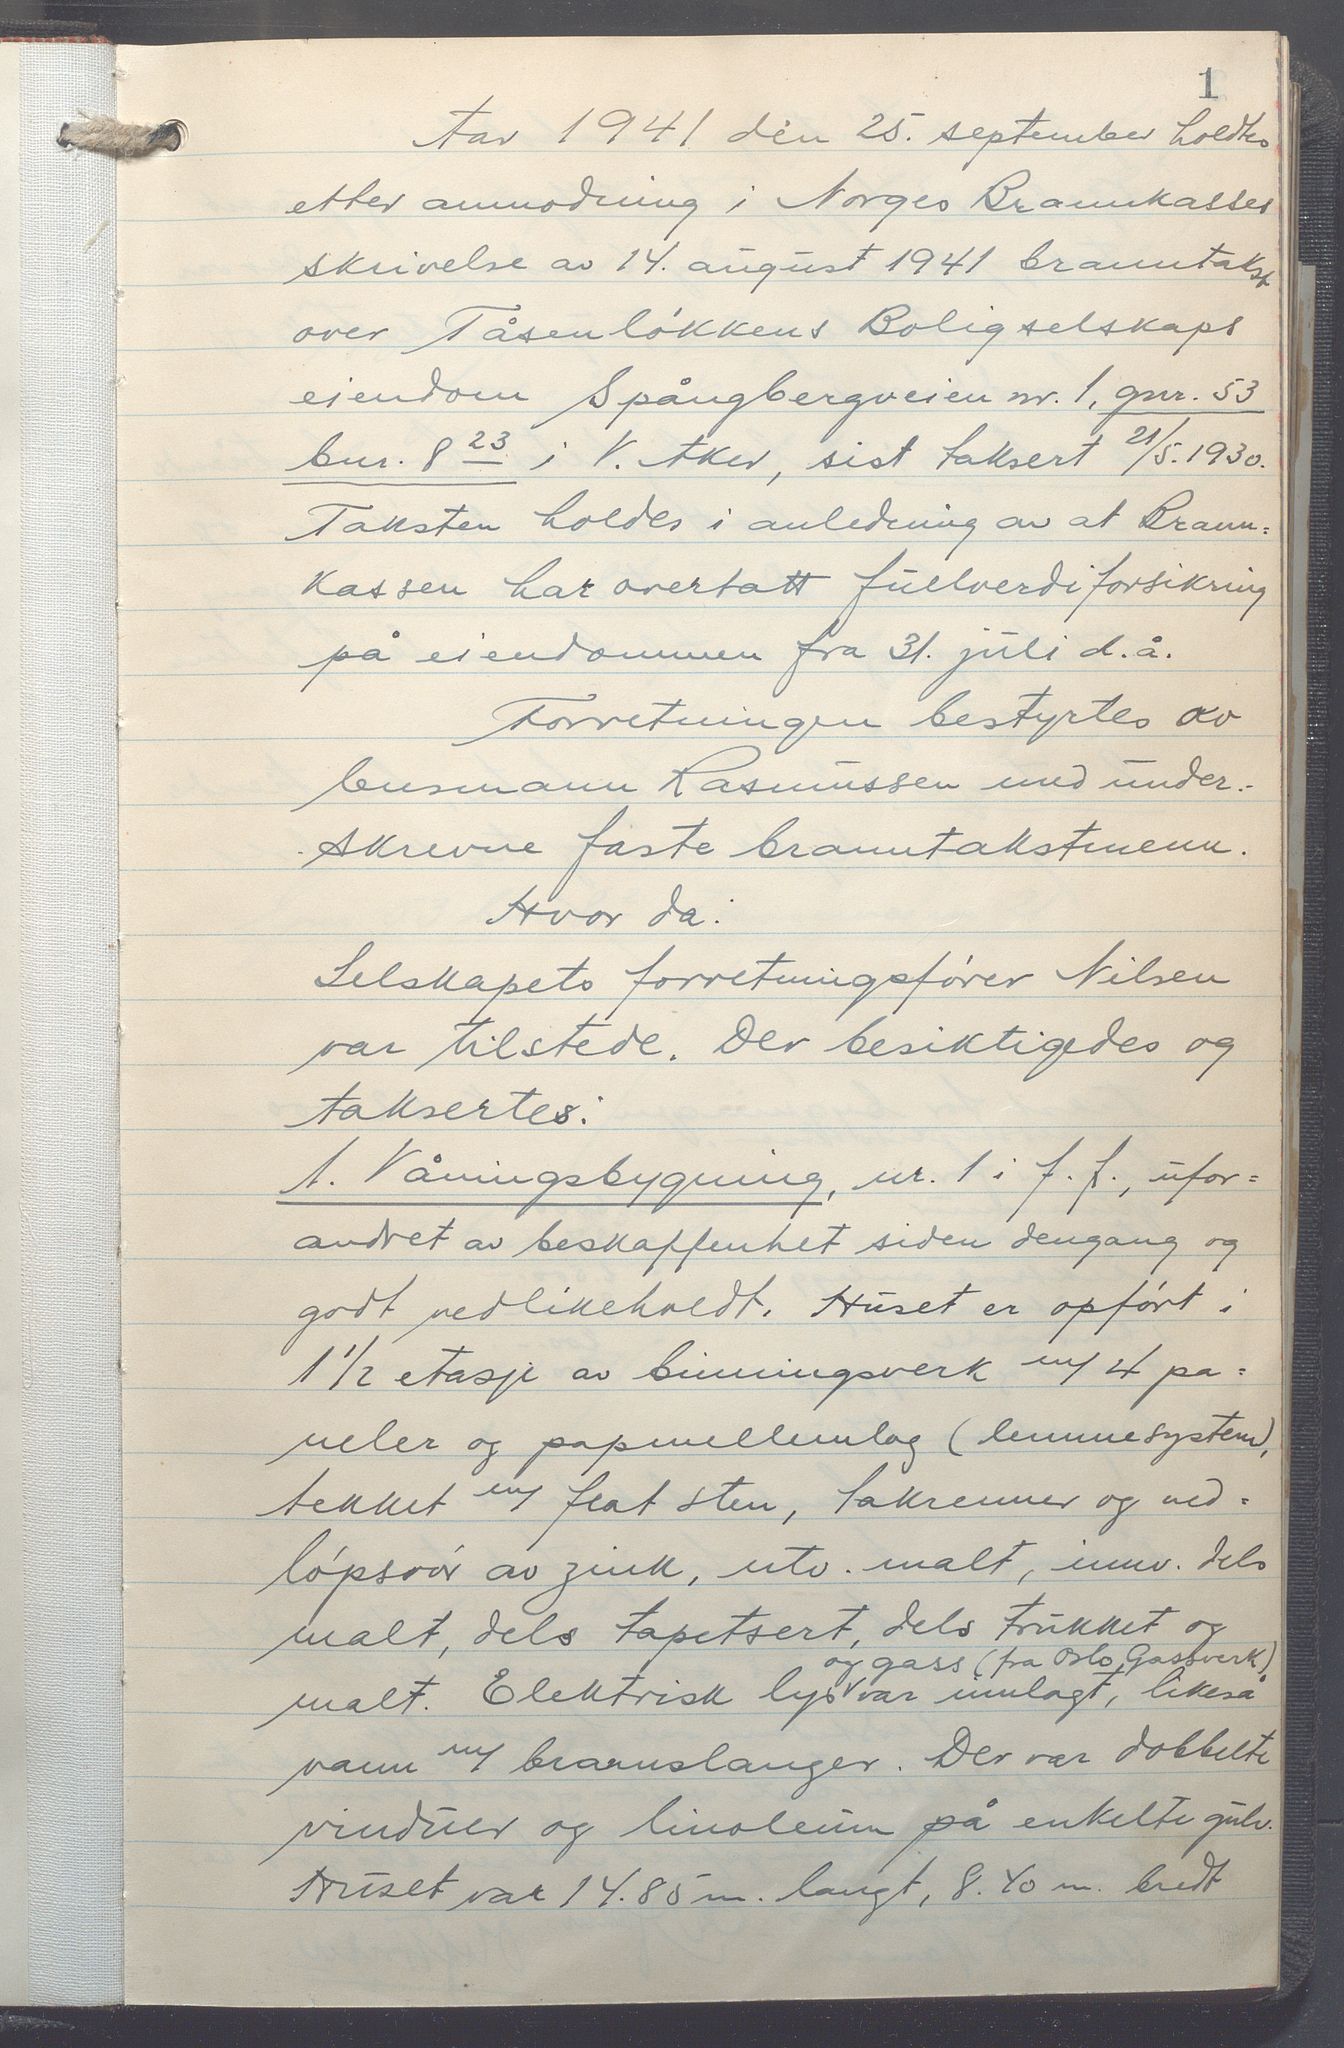 1
Aar 1941 den 25. september holdtes
etter anmodning i Norges Brannkasses
skrivelse av 14. august 1941 branntakst
over Tåsenløkkens Boligselskaps
eiendom Spångbergveien nr. 1, gnr. 53
bnr. 823 i V. Aker, sist taksert 21/5.1930.
Taksten holdes i anledning av at Brann=
kassen har overtatt fullverdiforsikring
på eiendommen fra 31. juli d.å.
Forretningen bestyrtes av
lensmann Rasmussen med under-
skrevne faste branntakstmenn.
Hvor da:
Selskapets forretningsfører Nilsen
var tilstede. Der besiktigedes og
taksertes:
A. Våningsbygning, nr. 1 i f. f., ufor=
andret av beskaffenhet siden dengang og
godt vedlikeholdt. Huset er opført i
1 1/2 etasje av binningsverk m/ 4 pa=
neler og papmellemlag (lemmesystem),
tekket m/ flat sten, takrenner og ned=
løpsrør av zink, utv. malt, innv. dels
malt, dels tapetsert, dels trukket og
og gass (fra Oslo Gassverk)
malt. Elektrisk lys var innlagt, likeså
vann m/ brannslanger. Der var dobbelte
vinduer og linoleum på enkelte gulv.
Huset var 14.85 m. langt, 8.40 m. bredt